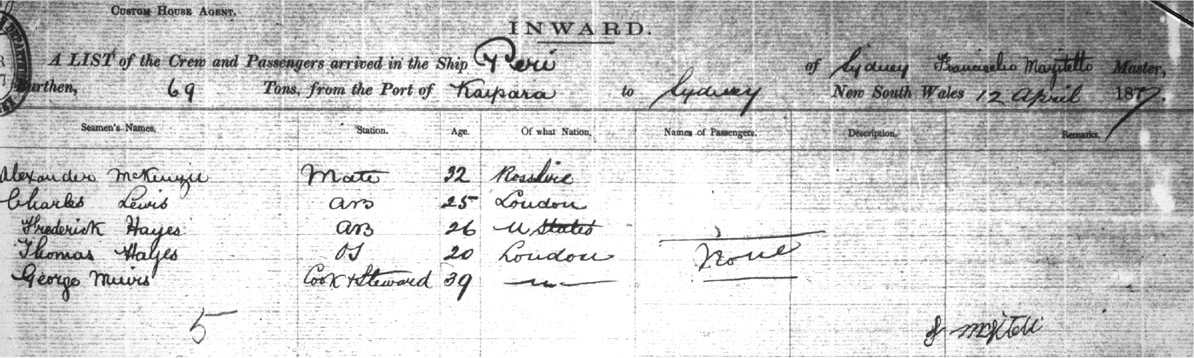 CUSTOM HOUSE AGENT.
INWARD.
A LIST of the Crew and Passengers arrived in the Ship Peri of Sydney Master,
Burthen, 69 Tons, from the Port of Kaipara to Sydney New South Wales 12 April 1877.
Seamen's Names, Station. Age. Of what Nation, Names of Passengers. Description. Remarks.
Alexander McKenzie Mate 32 Rosshire
Charles Lewis AB 25 London
Frederick Hayes AB 26 U States
Thomas Hayes OS 20 London
George Muirs Cook & Steward 39 —"—
None
5